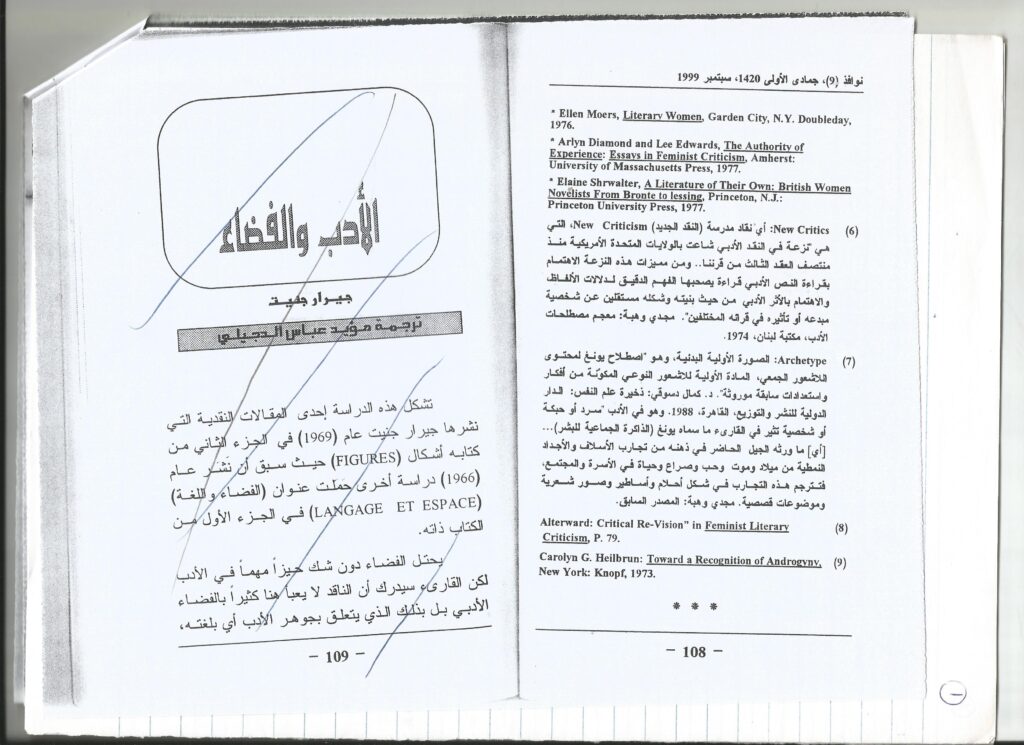 نوافذ (9)، جمادى الأولى 1420، سبتمبر 1999
* Ellen Moers, Literary Women, Garden City, N.Y. Doubleday,
1976.
* Arlyn Diamond and Lee Edwards, The Authority of
Experience: Essays in Feminist Criticism, Amherst:
University of Massachusetts Press, 1977.
* Elaine Shrwalter, A Literature of Their Own: British Women
Novelists From Bronte to lessing, Princeton, N.J.:
Princeton University Press, 1977.
(6) New Critics: أي نقاد مدرسة (النقد الجديد) New Criticism، التي
هي "نزعة في النقد الأدبي شاعت بالولايات المتحدة الأمريكية منذ
منتصف العقد الثالث من قرننا.. ومن مميزات هذه النزعة الاهتمام
بقراءة النص الأدبي قراءة يصحبها الفهم الدقيق لدلالات الألفاظ،
والاهتمام بالأثر الأدبي من حيث بنيته وشكله مستقلين عن شخصية
مبدعه أو تأثيره في قرائه المختلفين". مجدي وهبة: معجم مصطلحات
الأدب، مكتبة لبنان، 1974.
(7) Archetype: الصورة الأولية البدئية، وهو "اصطلاح يونغ لمحتوى
اللاشعور الجمعي، المادة الأولية للاشعور النوعي المكونة من أفكار
واستعدادات سابقة موروثة". د. كمال دسوقي: ذخيرة علم النفس: الدار
الدولية للنشر والتوزيع، القاهرة، 1988. وهو في الأدب "سرد أو حبكة
أو شخصية تثير في القارىء ما سماه يونغ (الذاكرة الجماعية للبشر)...
[أي] ما ورثه الجيل الحاضر في ذهنه من تجارب الأسلاف والأجداد
النمطية من ميلاد وموت وحب وصراع وحياة في الأسرة والمجتمع،
فتترجم هذه التجارب في شكل أحلام وأساطير وصور شعرية
وموضوعات قصصية. مجدي وهبة: المصدر السابق.
(8) Alterward: Critical Re-Vision" in Feminist Literary
Criticism, P. 79.
(9) Carolyn G. Heilbrun: Toward a Recognition of Androgyny,
New York: Knopf, 1973.
* * *
– 108 –
الأدب والفضاء
جيرار جنيت
ترجمة مؤيد عباس الدجيلي
تشكل هذه الدراسة إحدى المقالات النقدية التي
نشرها جيرار جنيت عام (1969) في الجزء الثاني من
كتابه أشكال (FIGURES) حيث سبق أن نشر عام
(1966) دراسة أخرى حملت عنوان (الفضاء واللغة)
(LANGAGE ET ESPACE) في الجزء الأول من
الكتاب ذاته.
يحتل الفضاء دون شك حيزاً مهماً في الأدب
لكن القارىء سيدرك أن الناقد لا يعبأ هنا كثيراً بالفضاء
الأدبي بل بذلك الذي يتعلق بجوهر الأدب أي بلغته،
– 109 –
1